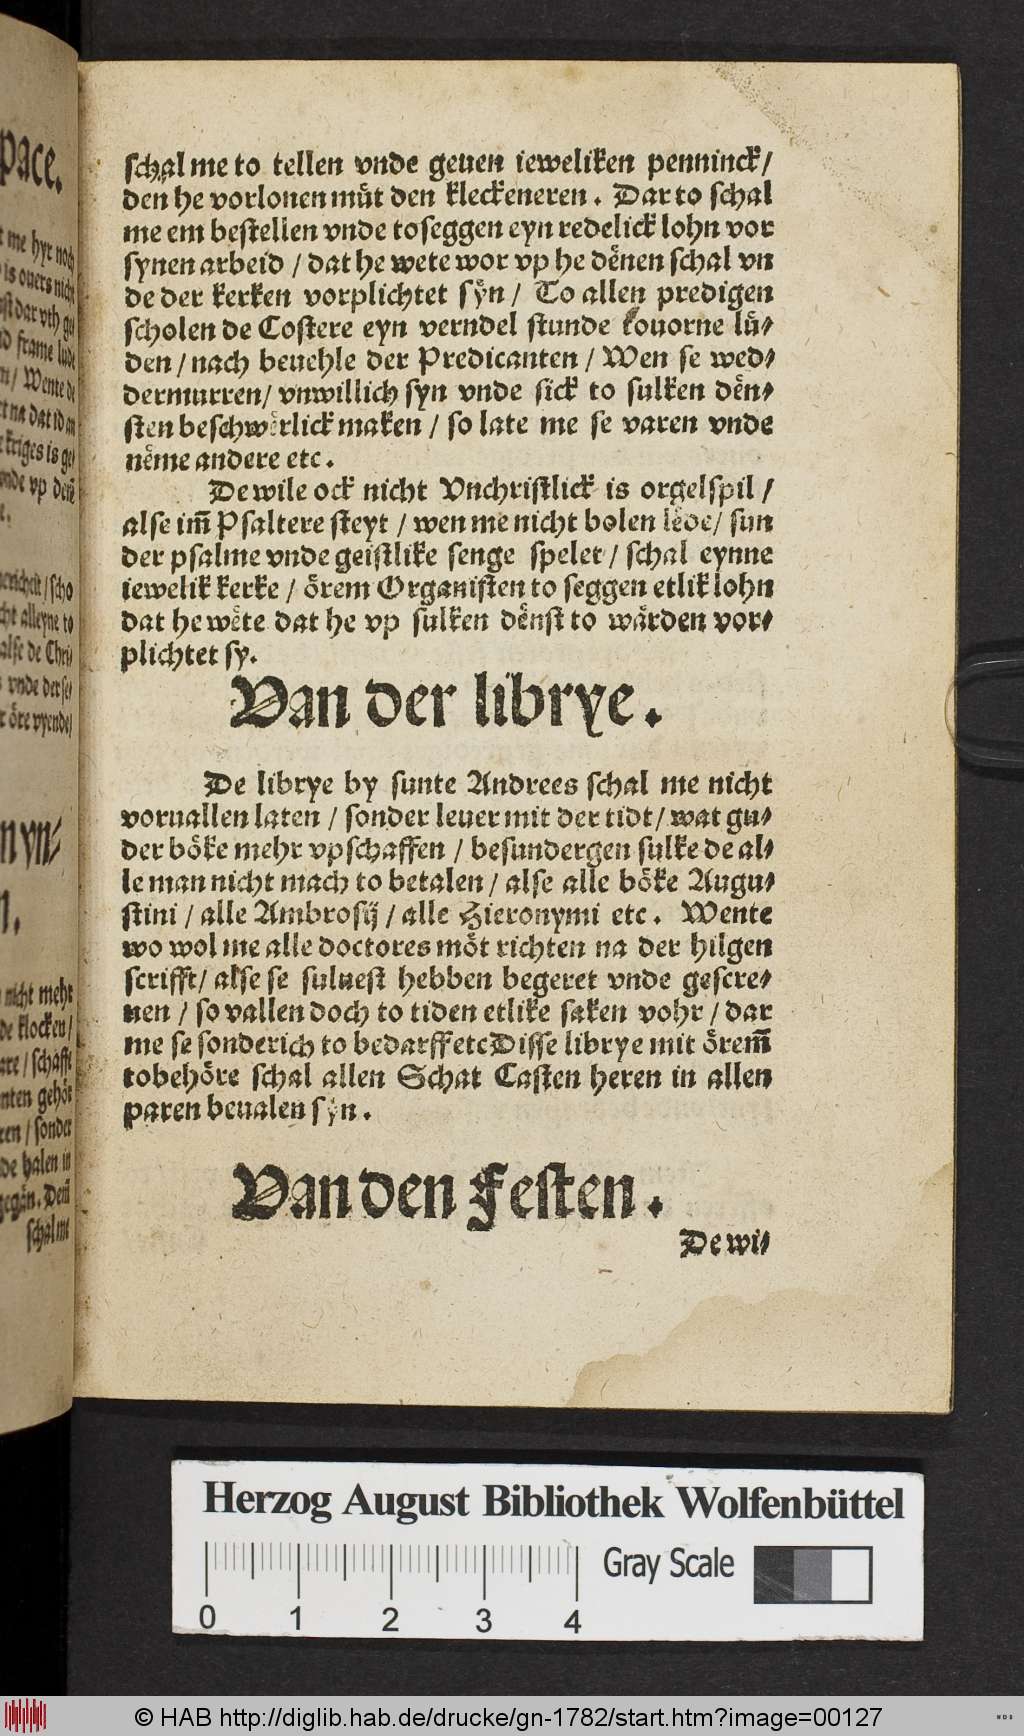 Pace.
t me hyr noch
is ouers nicht
st dar vth ge
frame lude
n / Wente de
t na dat id an
kriges is ge
nde vp deñ
e.
cht alleyne to
alse de Chri
vnde der se
r öre vyende
n yn⸗
n.
nicht mehr
de klocken /
are / schafft
nten gehör
ren / sonder
de halen in
gegän. Dem̃
schal me
schal me to tellen vnde geuen ieweliken penninck /
den he vorlonen müt den kleckeneren. Dar to schal
me em bestellen vnde to seggen eyn redelick lohn vor
synen arbeid / dat he wete wor vp he dênen schal vn
de der kerken vorplichtet sÿn / To allen predigen
scholen de Costere eyn verndel stunde touorne lü⸗
den / nach beuehle der Predicanten / Wen se wed⸗
dermurren / vnwillich syn vnde sick to sulken dên⸗
sten beschwêrlick maken / so late me se varen vnde
nême andere etc.
De wile ock nicht Vnchristlick is orgelspil /
alse im̃ Psaltere steyt / wen me nicht bolen lêde / sun
der psalme vnde geistlike senge spelet / schal eynne
iewelik kerke / örem Organisten to seggen etlik lohn
dat he wête dat he vp sulken dênst to wârden vor⸗
plichtet sy.
Van der librye.
De librye by sunte Andrees schal me nicht
voruallen laten / sonder leuer mit der tidt / wat gu⸗
der böke mehr vpschaffen / besundergen sulke de al⸗
le man nicht mach to betalen / alse alle böke Augu⸗
stini / alle Ambrosij / alle Hieronymi etc. Wente
wo wol me alle doctores möt richten na der hilgen
scrifft / alse se suluest hebben begeret vnde gescre⸗
uen / so vallen doch to tiden etlike saken vohr / dar
me se sonderich to bedarff etc Disse librye mit örem̃
tobehöre schal allen Schat Casten heren in allen
paren beualen sÿn.
Van den Festen.
De wi⸗
Herzog August Bibliothek Wolfenbüttel
Gray Scale
0 1 2 3 4
© HAB http://diglib.hab.de/drucke/gn-1782/start.htm?image=00127